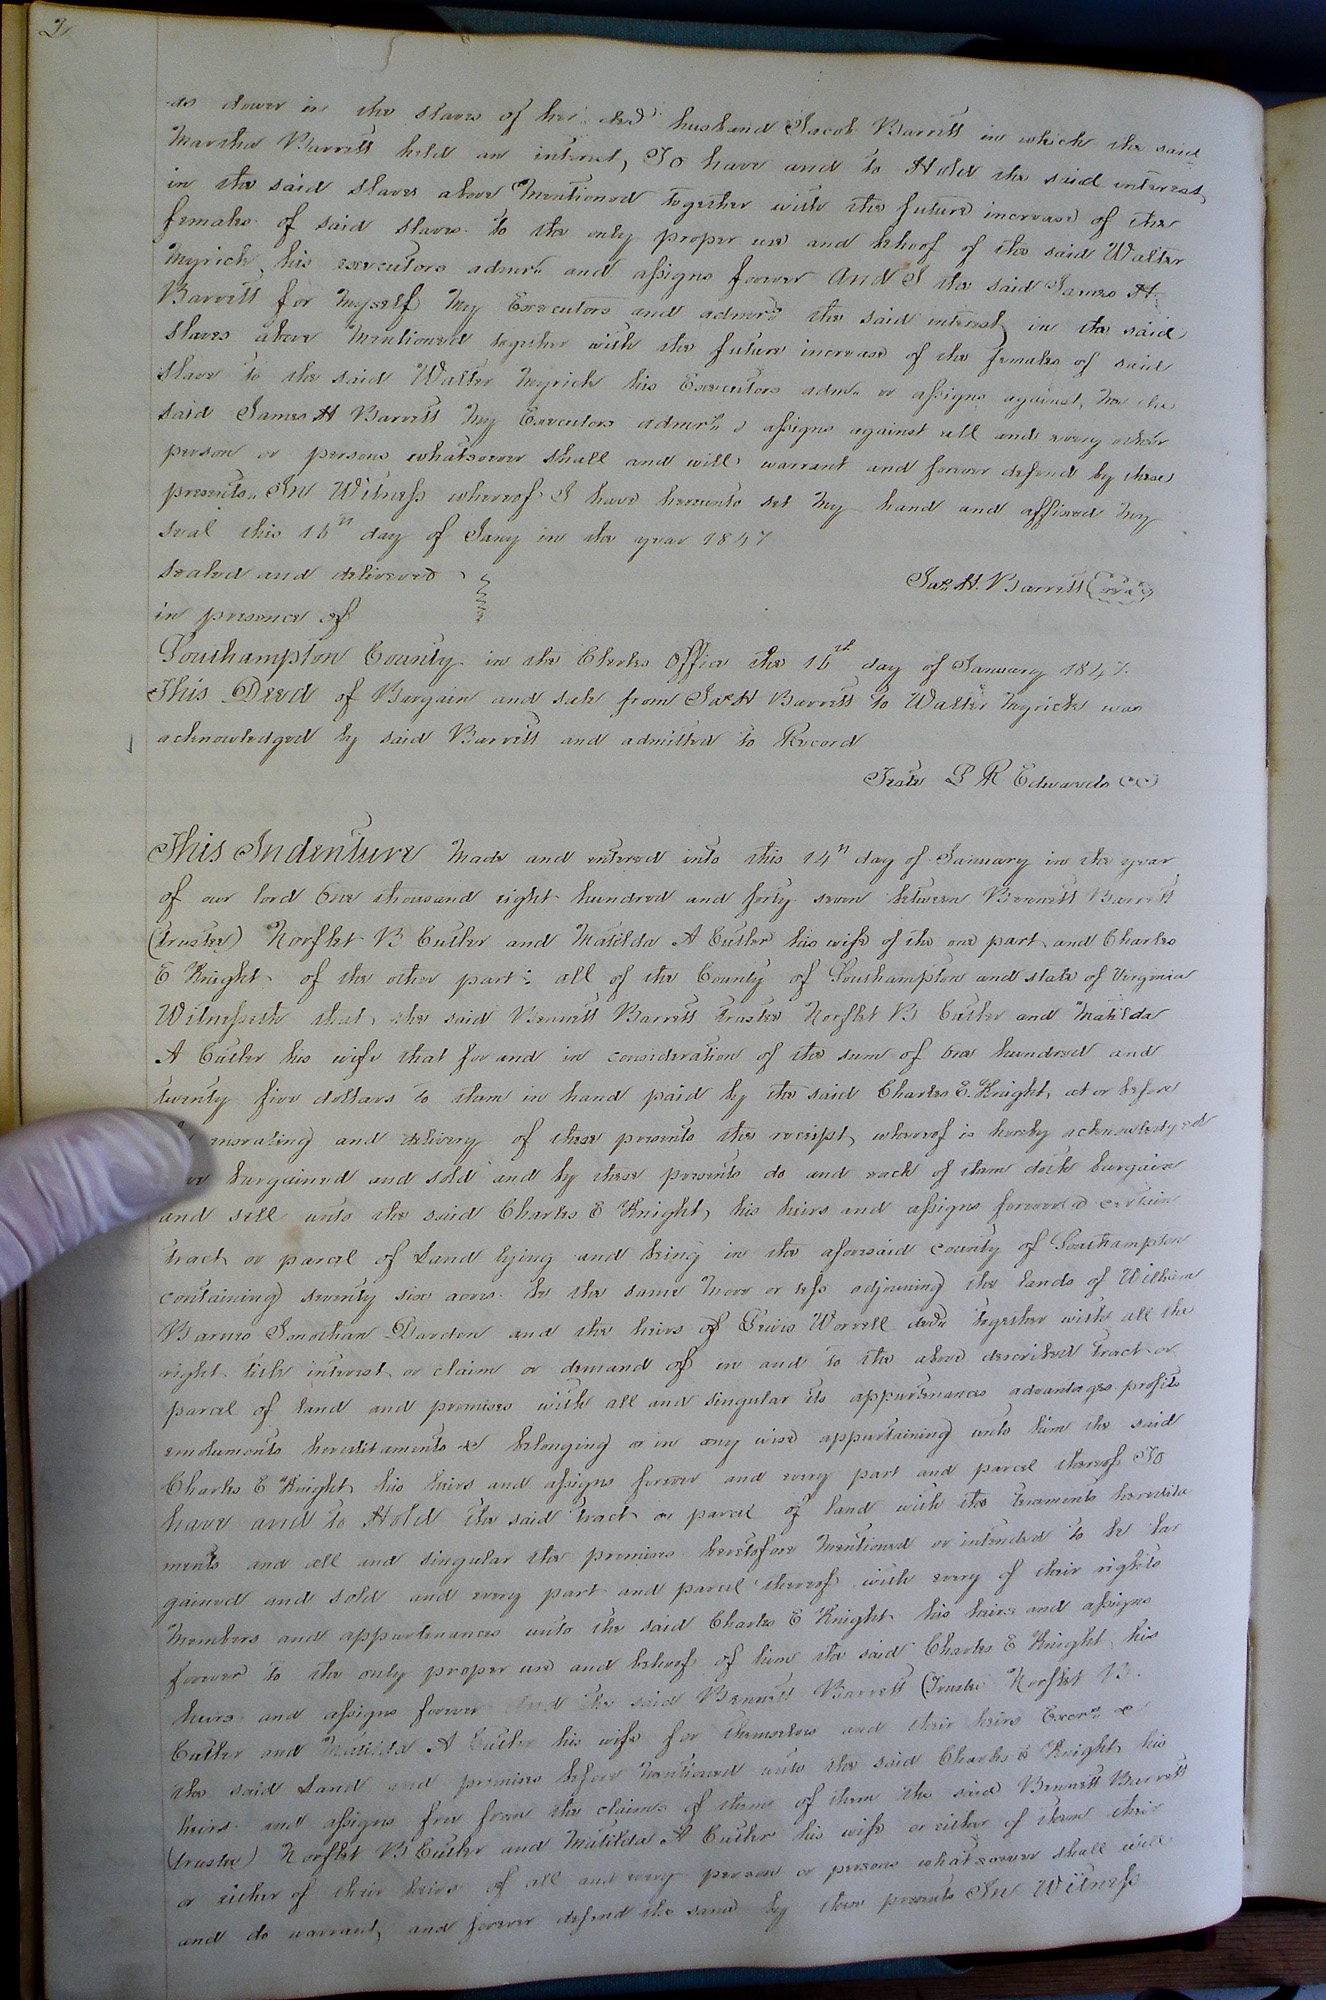 2
as dower in the slaves of her decd husband Jacob Barrett in which the said
Martha Barrett held an interest, To have and to Hold the said interest,
in the said slaves above Mentioned together with the future increase of the
females of said slaves to the only proper use and behoof of the said Walter
Myrick, his executors admrs and assigns forever And I the said James H.
Barrett for Myself My Executors and admrs the said interest in the said
slaves above Mentioned together with the future increase of the females of said
slave to the said Walter Myrick his Executors adms or assigns against, Me the
said James H Barrett My Executors admrs & assigns against all and every other
person or persons whatsoever shall and will warrant and forever defend by these
presents. In Witness whereof I have hereunto set My hand and affixed My
seal this 16th day of Jany in the year 1847
sealed and delivered
Jas. H. Barrett seal
in presence of
Southampton County in the Clerks Office the 16th day of January 1847.
This Deed of Bargain and sale from Jas H Barrett to Walter Myrick was
acknowledged by said Barrett and admitted to Record
Teste L R Edwards CC
This Indenture Made and entered into this 14th day of January in the year
of our lord One thousand eight hundred and forty seven between Bennett Barrett
(trustee) Norflet B Cutler and Matilda A Cutler his wife of the one part and Charles
E Knight of the other part: all of the County of Southampton and state of Virginia
Witnesseth that, the said Bennett Barrett trustee Norflet B Cutler and Matilda
A Cutler his wife that for and in consideration of the sum of One hundred and
twenty five dollars to them in hand paid by the said Charles E. Knight, at or before
ensealing and delivery of these presents the receipt, whereof is hereby acknowledged
bargained and sold and by these presents do and each of them doth bargain
and sell unto the said Charles E Knight, his heirs and assigns forever a certain
tract or parcel of Land lying and being in the aforesaid county of Southampton
containing seventy six acres be the same More or less adjoining the lands of William
Barnes Jonathan Darden and the heirs of Lewis Worrell decd together with all the
right title interest or claim or demand of in and to the above described tract or
parcel of land and premises with all and singular its appurtenances advantages profits
emoluments hereditaments &c belonging or in any wise appertaining unto him the said
Charles E Knight, his heirs and assigns forever and every part and parcel thereof To
have and to Hold the said tract or parcel of land with the tenaments heredita
ments and all and singular the premises heretofore Mentioned or intended to be bar
gained and sold and every part and parcel thereof with every of their rights
Members and appurtenances unto the said Charles E Knight his heirs and assigns
forever to the only proper use and behoof of him the said Charles E Knight his
heirs and assigns forever And the said Bennett Barrett (Trustee Norflet B.
Cutler and Matilda A Cutler his wife for themselves and their heirs Exors &c
the said Land and premises before Mentioned unto the said Charles E Knight his
heirs and assigns free from the claims of them of them the said Bennett Barrett
(trustee) Norflet B Cutler and Matilda A Cutler his wife or either of them their
or either of their heirs of all and every person or persons whatsoever shall will
and do warrant, and forever defend the same by these presents In Witness